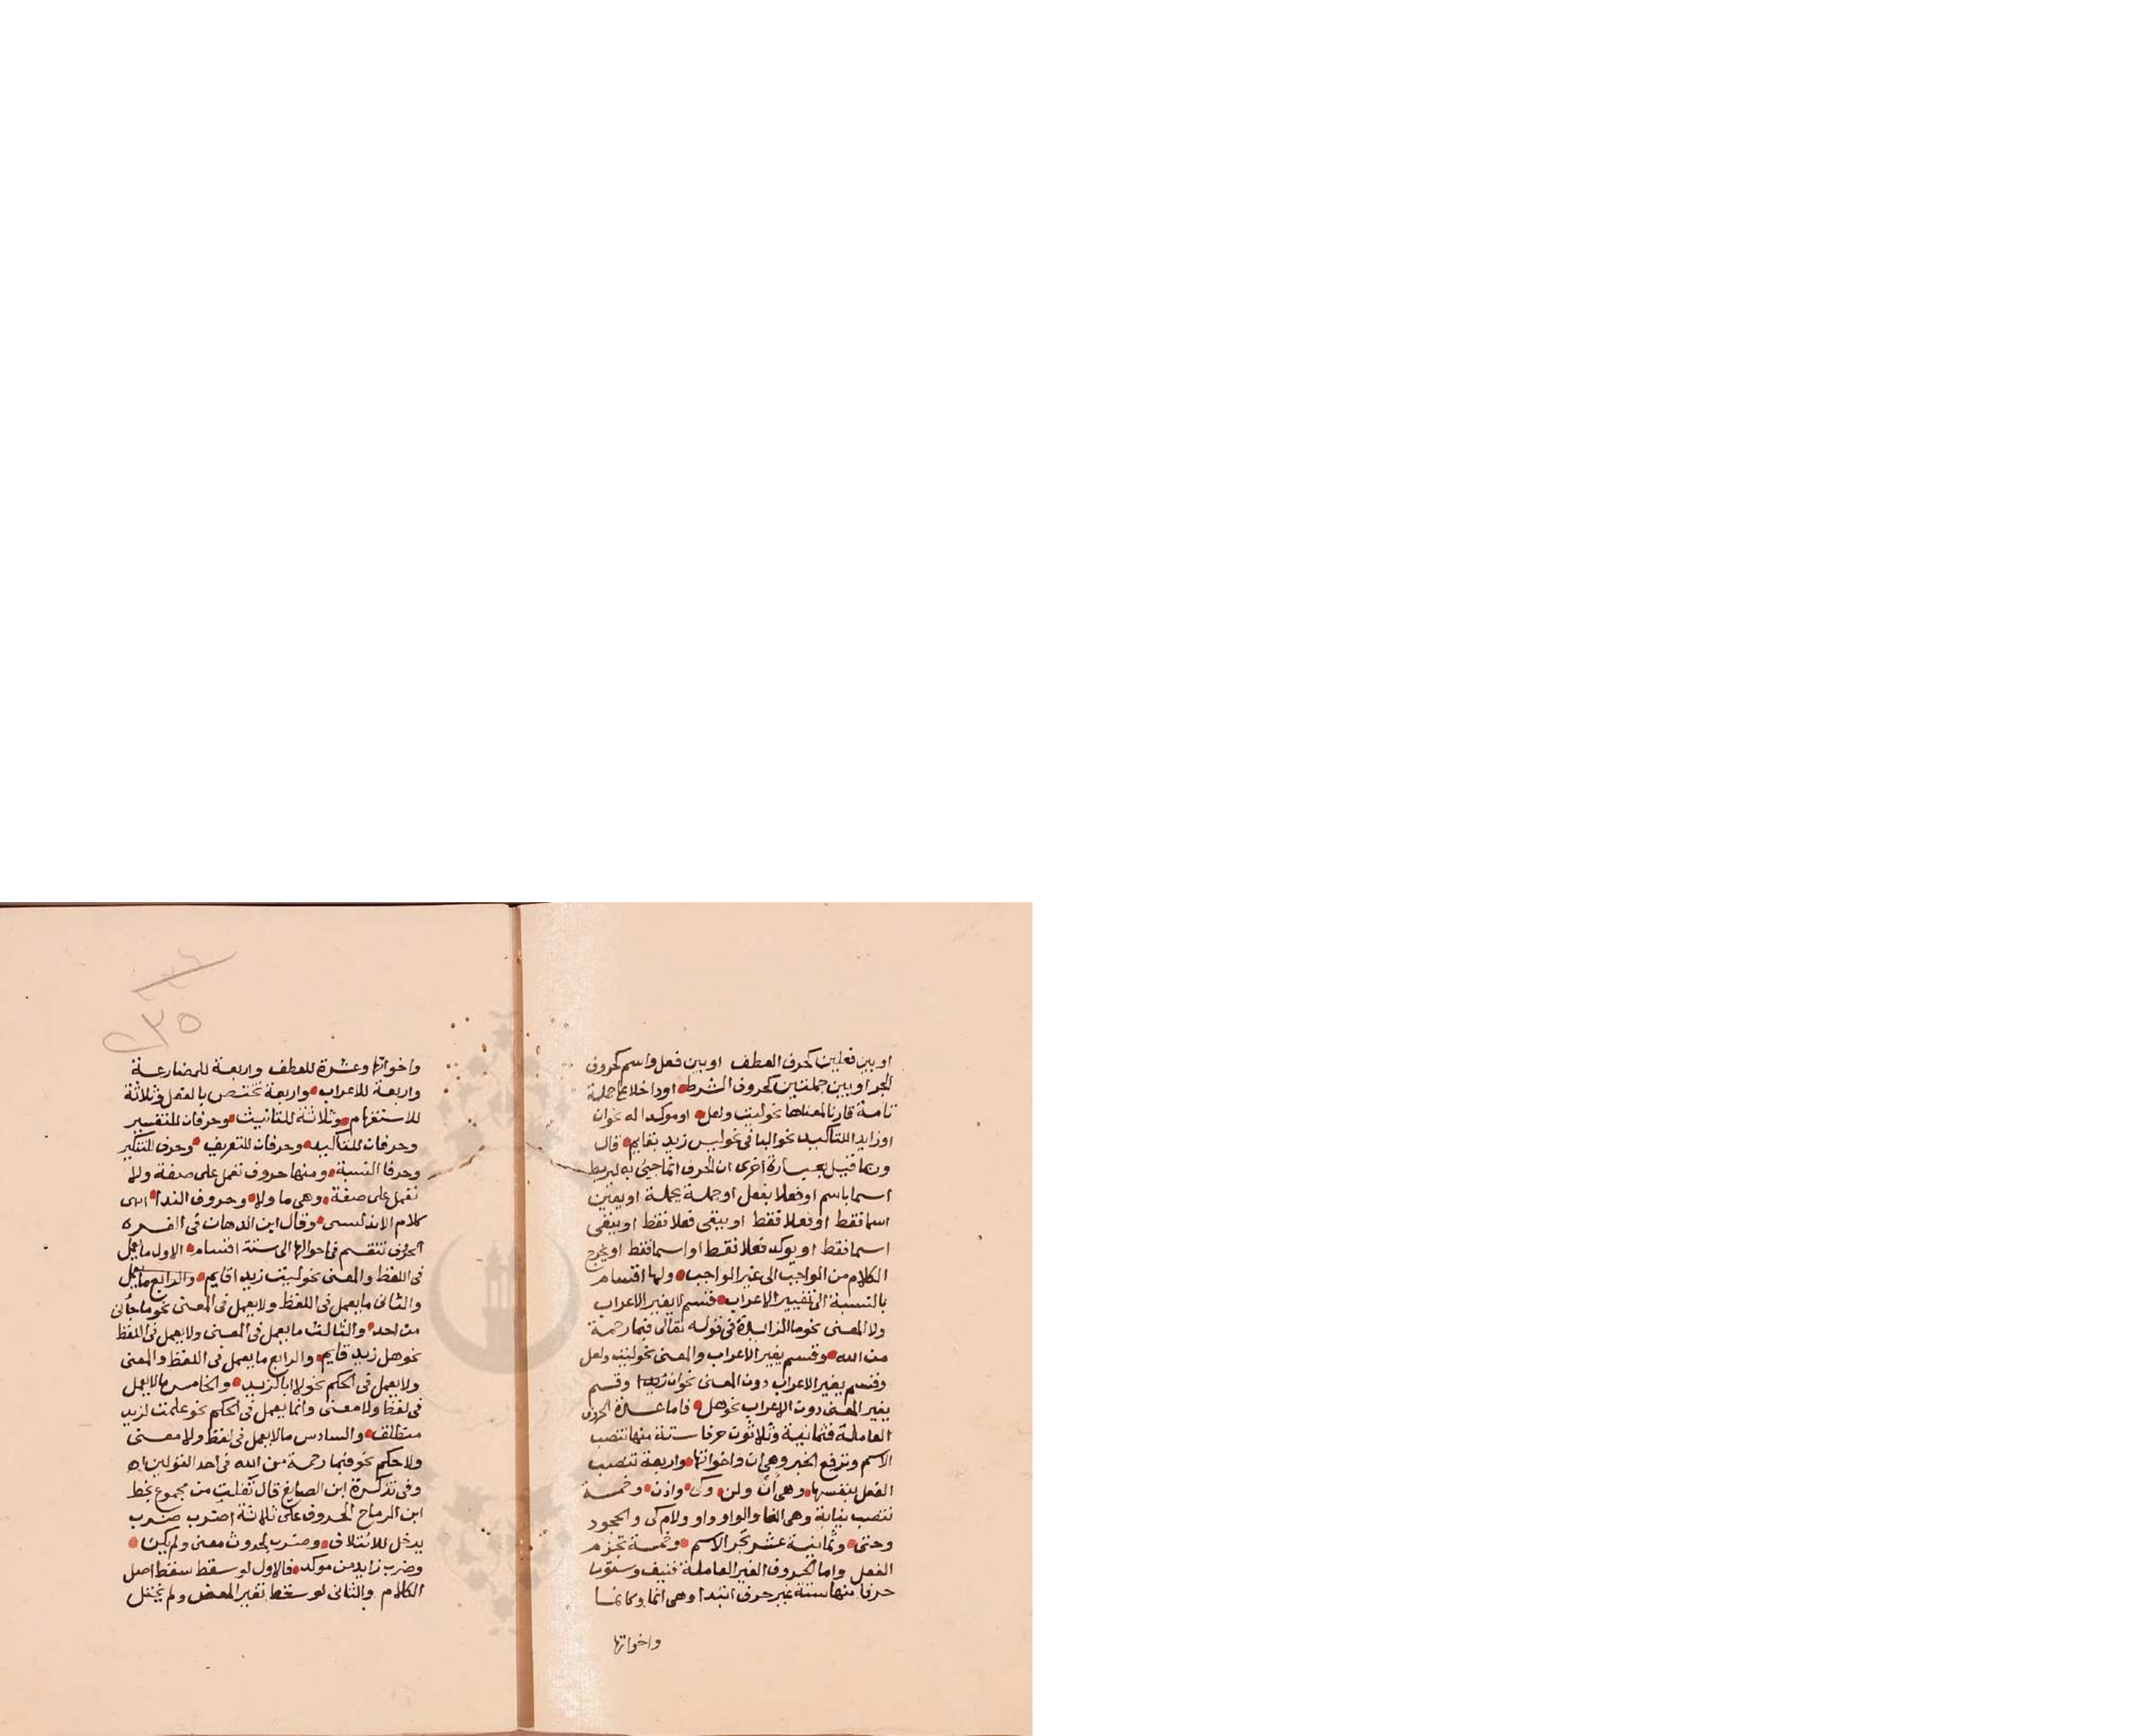 او بين فعلين كحرف العطف او بين فعل واسم كحروف
الجر او بين جملتين كحروف الشرط او داخلا على جملة
تامة قارنا لمعناها نحو ليت ولعل او موكدا له نحو ان
او زايدا للتاكيد نحو البا فى نحو ليس زيد بقايم قال
وربما قيل بعبارة اخرى ان الحرف انما جئ به ليربط
اسما باسم او فعلا بفعل او جملة بجملة او يعين
اسما فقط او فعلا فقط او ينفى فعلا فقط او ينفى
اسما فقط او يوكد فعلا فقط او اسما فقط او يخرج
الكلام من الواجب الى غير الواجب ولها اقسام
بالنسبة الى تغيير الاعراب فقسم لا يغير الاعراب
ولا المعنى نحو ما الزائدة فى قوله تعالى فبما رحمة
من الله وقسم يغير الاعراب والمعنى نحو ليت ولعل
وقسم يغير الاعراب دون المعنى نحو ان زيدا وقسم
يغير المعنى دون الاعراب نحو هل فاما عدة الحروف
العاملة فثمانية وثلاثون حرفا ستة منها تنصب
الاسم وترفع الخبر وهى ان واخواتها واربعة تنصب
الفعل بنفسها وهى أن ولن وكى واذن وخمسة
تنصب نيابة وهى الفا والواو واو ولام كى والجحود
وحتى وثمانية عشر تجر الاسم وخمسة تجزم
الفعل واما الحروف الغير العاملة فنيف وستون
حرفا منها ستة غير حرف ابتدا وهى انما وكانما
واخواتها
واخواتها وعشرة للعطف واربعة للمضارعة
واربعة للاعراب واربعة تختص بالفعل وثلاثة
للاستفهام وثلاثة للتانيث وحرفان للتفسير
وحرفان للتاكيد وحرفان للتعريف وحرف للتنكير
وحرفا النسبة ومنها حروف تعمل على صفة ولا
تعمل على صفة وهى ما ولا وحروف الندا انتهى
كلام الاندلسى وقال ابن الدهان فى الغره
الحرف تنقسم فى احوالها الى ستة اقسام الاول ما يعمل
فى اللفظ والمعنى نحو ليت زيدا قايم والرابع ما يعمل
والثانى ما يعمل فى اللفظ ولا يعمل فى المعنى نحو ما جأنى
من احد والثالث ما يعمل فى المعنى ولا يعمل فى اللفظ
نحو هل زيد قايم والرابع ما يعمل فى اللفظ والمعنى
ولا يعمل فى الحكم نحو لا ابا لزيد والخامس ما لا يعمل
فى لفظ ولا معنى وانما يعمل فى الحكم نحو علمت لزيد
منطلق والسادس ما لا يعمل فى لفظ ولا معنى
ولا حكم نحو فبما رحمة من الله فى احد القولين اه
وفى تذكرة ابن الصايغ قال نقلت من مجموع بخط
ابن الرماح الحروف على ثلاثة اضرب ضرب
يدخل للائتلاف وضرب لحدوث معنى ولم يكن
وضرب زايد من موكد فالاول لو سقط سقط اصل
الكلام والثانى لو سقط تغير المعنى ولم يختل